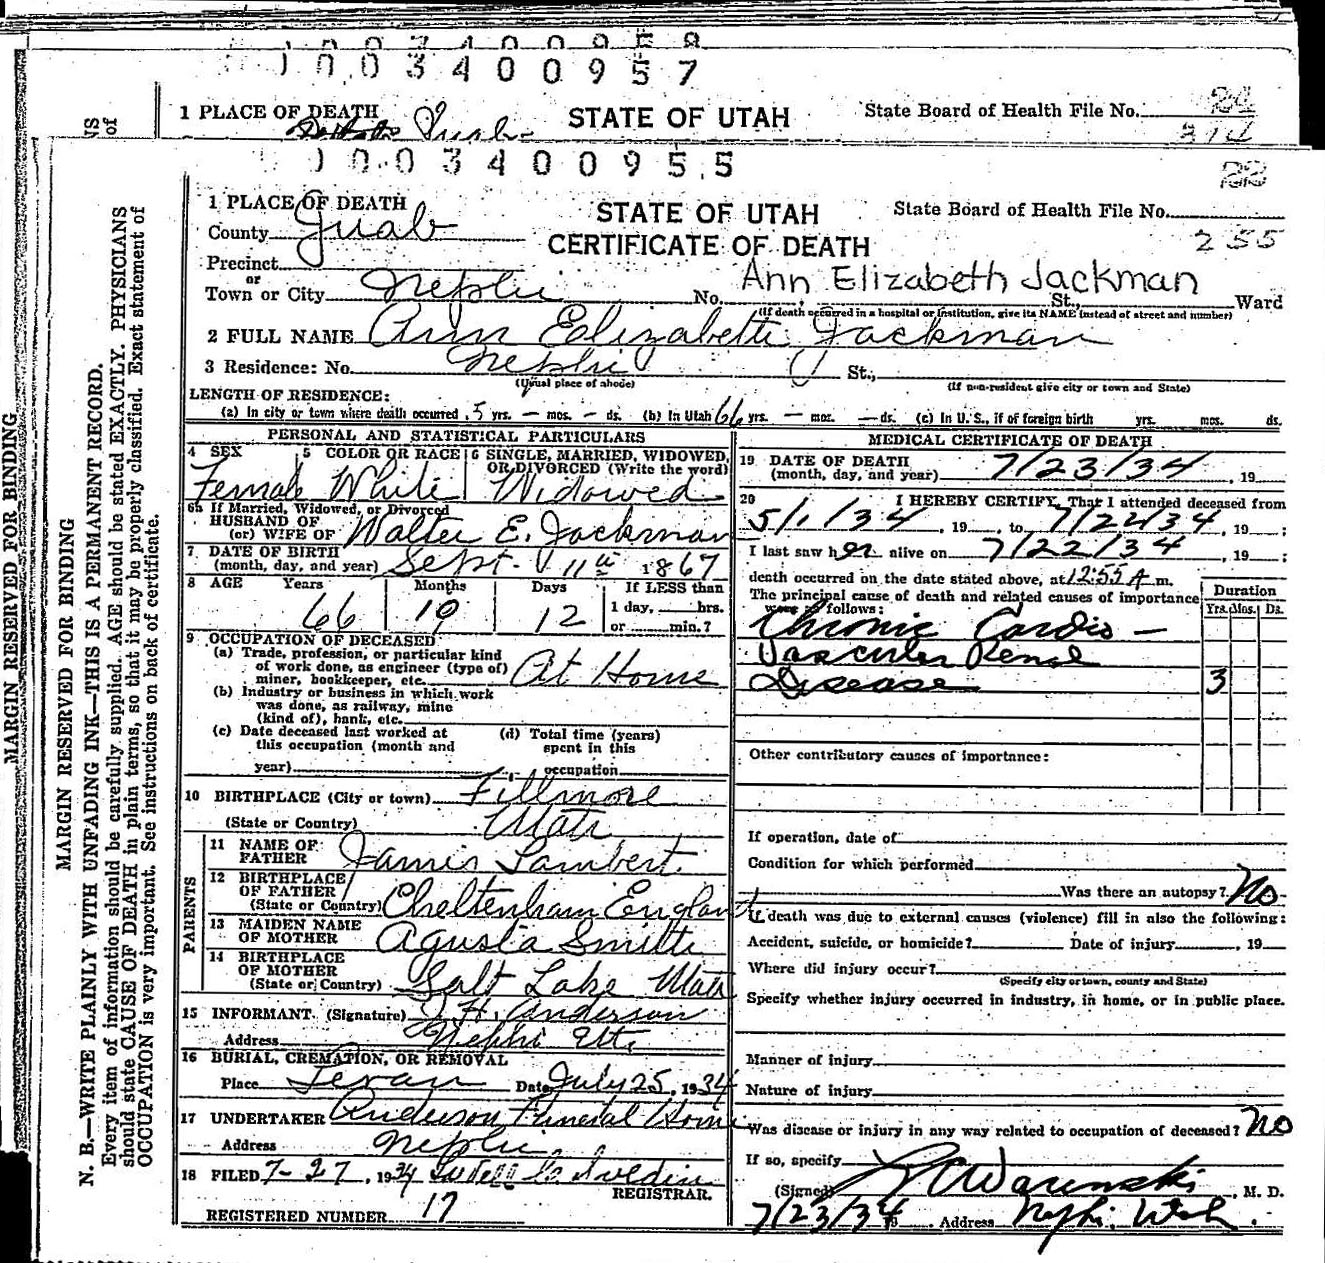 1 0 0 3 4 0 0 9 5 8
1 0 0 3 4 0 0 9 5 7
1 PLACE OF DEATH
Juab
STATE OF UTAH
State Board of Health File No.
NS
of
1 0 0 3 4 0 0 9 5 5
1 PLACE OF DEATH
County Juab
STATE OF UTAH
CERTIFICATE OF DEATH
State Board of Health File No.
255
Precinct
or
Town or City Nephi No. Ann Elizabeth Jackman St., Ward
(If death occurred in a hospital or institution, give its NAME instead of street and number)
2 FULL NAME Ann Elizabeth Jackman
3 Residence: No. Nephi St.,
(Usual place of abode) (If non-resident give city or town and State)
LENGTH OF RESIDENCE:
(a) In city or town where death occurred 5 yrs. – mos. – ds. (b) In Utah 66 yrs. – mos. – ds. (c) In U. S., if of foreign birth yrs. mos. ds.
PERSONAL AND STATISTICAL PARTICULARS
4 SEX 5 COLOR OR RACE 6 SINGLE, MARRIED, WIDOWED, OR DIVORCED (Write the word)
Female White Widowed
6a If Married, Widowed, or Divorced
HUSBAND OF
(or) WIFE OF Walter E. Jackman
7 DATE OF BIRTH
(month, day, and year) Sept. 11th 1867
8 AGE Years Months Days If LESS than
66 10 12 1 day, hrs.
or min.?
9 OCCUPATION OF DECEASED
(a) Trade, profession, or particular kind
of work done, as engineer (type of)
miner, bookkeeper, etc. At Home
(b) Industry or business in which work
was done, as railway, mine
(kind of), bank, etc.
(c) Date deceased last worked at
this occupation (month and
year)
(d) Total time (years)
spent in this
occupation
10 BIRTHPLACE (City or town) Fillmore
(State or Country) Utah
PARENTS
11 NAME OF
FATHER James Lambert
12 BIRTHPLACE
OF FATHER
(State or Country) Cheltenham England
13 MAIDEN NAME
OF MOTHER Agusta Smith
14 BIRTHPLACE
OF MOTHER
(State or Country) Salt Lake Utah
15 INFORMANT (Signature) J. H. Anderson
Address Nephi Ut.
16 BURIAL, CREMATION, OR REMOVAL
Place Levan Date July 25, 1934
17 UNDERTAKER Anderson Funeral Home
Address Nephi
18 FILED 7-27, 1934
REGISTRAR.
REGISTERED NUMBER 17
MEDICAL CERTIFICATE OF DEATH
19 DATE OF DEATH
(month, day, and year) 7/23/34, 19
20 I HEREBY CERTIFY, That I attended deceased from
5/1/34, 19, to 7/22/34, 19 ;
I last saw her alive on 7/22/34, 19 ;
death occurred on the date stated above, at 12:55 A m.
The principal cause of death and related causes of importance
were as follows:
Duration
Yrs. Mos. Ds.
Chronic Cardio-
Vascular Renal
Disease 3
Other contributory causes of importance:
If operation, date of
Condition for which performed
Was there an autopsy? No
If death was due to external causes (violence) fill in also the following:
Accident, suicide, or homicide? Date of injury, 19
Where did injury occur?
(Specify city or town, county and State)
Specify whether injury occurred in industry, in home, or in public place.
Manner of injury
Nature of injury
Was disease or injury in any way related to occupation of deceased? No
If so, specify
(Signed) , M. D.
7/23/34 19 Address Nephi, Utah.
MARGIN RESERVED FOR BINDING
MARGIN RESERVED FOR BINDING
N. B.—WRITE PLAINLY WITH UNFADING INK—THIS IS A PERMANENT RECORD.
Every item of information should be carefully supplied. AGE should be stated EXACTLY. PHYSICIANS
should state CAUSE OF DEATH in plain terms, so that it may be properly classified. Exact statement of
OCCUPATION is very important. See instructions on back of certificate.